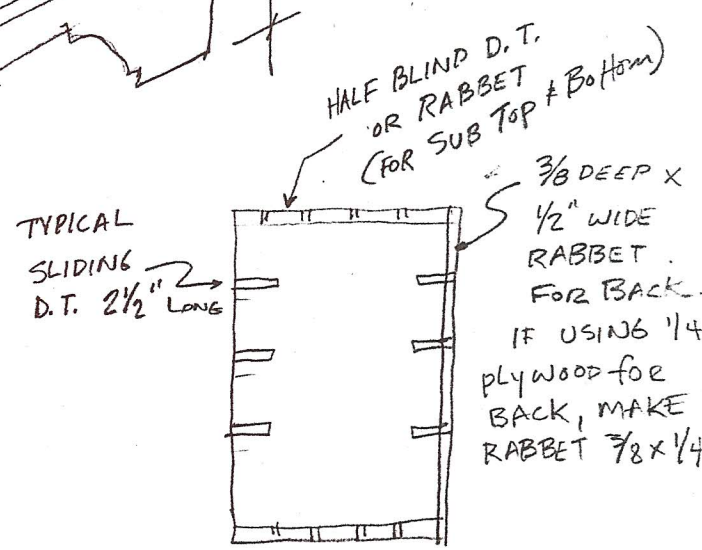 HALF BLIND D.T.
OR RABBET
(FOR SUB TOP & BOTTOM)
TYPICAL
SLIDING
D.T. 2½" LONG
3/8 DEEP X
1/2" WIDE
RABBET.
FOR BACK.
IF USING 1/4
PLYWOOD FOR
BACK, MAKE
RABBET 3/8 X 1/4